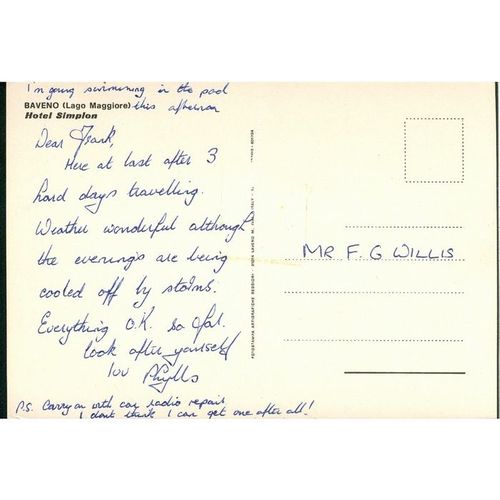 I'm going swimming in the pool
this afternoon
BAVENO (Lago Maggiore)
Hotel Simplon
Dear Frank,
Here at last after 3
hard days travelling.
Weather wonderful although
the evenings are being
cooled off by storms.
Everything O.K. so far.
Look after yourself
luv Phyllis
P.S. Carry on with car radio repair
I dont think I can get one after all!
MR F. G WILLIS